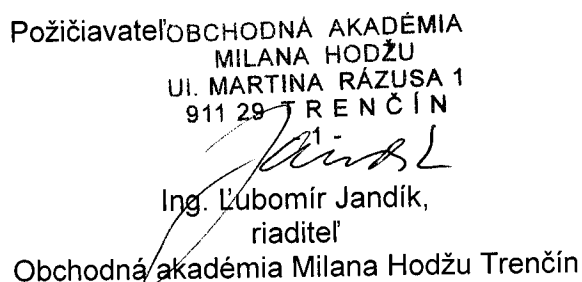 Požičiavateľ OBCHODNÁ AKADÉMIA
MILANA HODŽU
Ul. MARTINA RÁZUSA 1
911 29 TRENČÍN
- 1 -
Ing. Ľubomír Jandík,
riaditeľ
Obchodná akadémia Milana Hodžu Trenčín